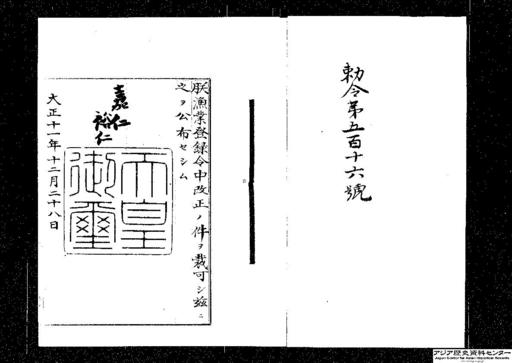 勅令第五百十六號
朕漁業登録令中改正ノ件ヲ裁可シ茲ニ
之ヲ公布セシム
嘉仁
裕仁
天皇
御璽
大正十一年十二月二十八日
アジア歴史資料センター
Japan Center for Asian Historical Records